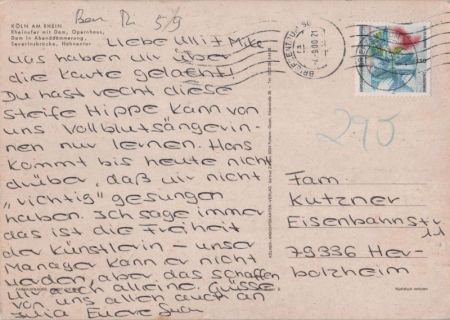 KÖLN AM RHEIN
Rheinufer mit Dom, Opernhaus,
Dom in Abenddämmerung,
Severinsbrücke, Hahnentor
Liebe Ulli + Mike
was haben wir über
die Karte gelacht!
Du hast recht diese
steife Hippe kann von
uns Vollblutsängerin-
nen nur lernen. Hans
kommt bis heute nicht
drüber, daß wir nicht
„richtig" gesungen
haben. Ich sage immer
das ist die Freiheit
der Künstlerin - unser
Manager kann er nicht
werden, aber das schaffen
wir auch alleine. Grüsse
von uns allen auch an
Julia Eure
BRIEFZENTRUM
295
Fam.
Kutzner
Eisenbahnstr
11
79336 Her-
bolzheim